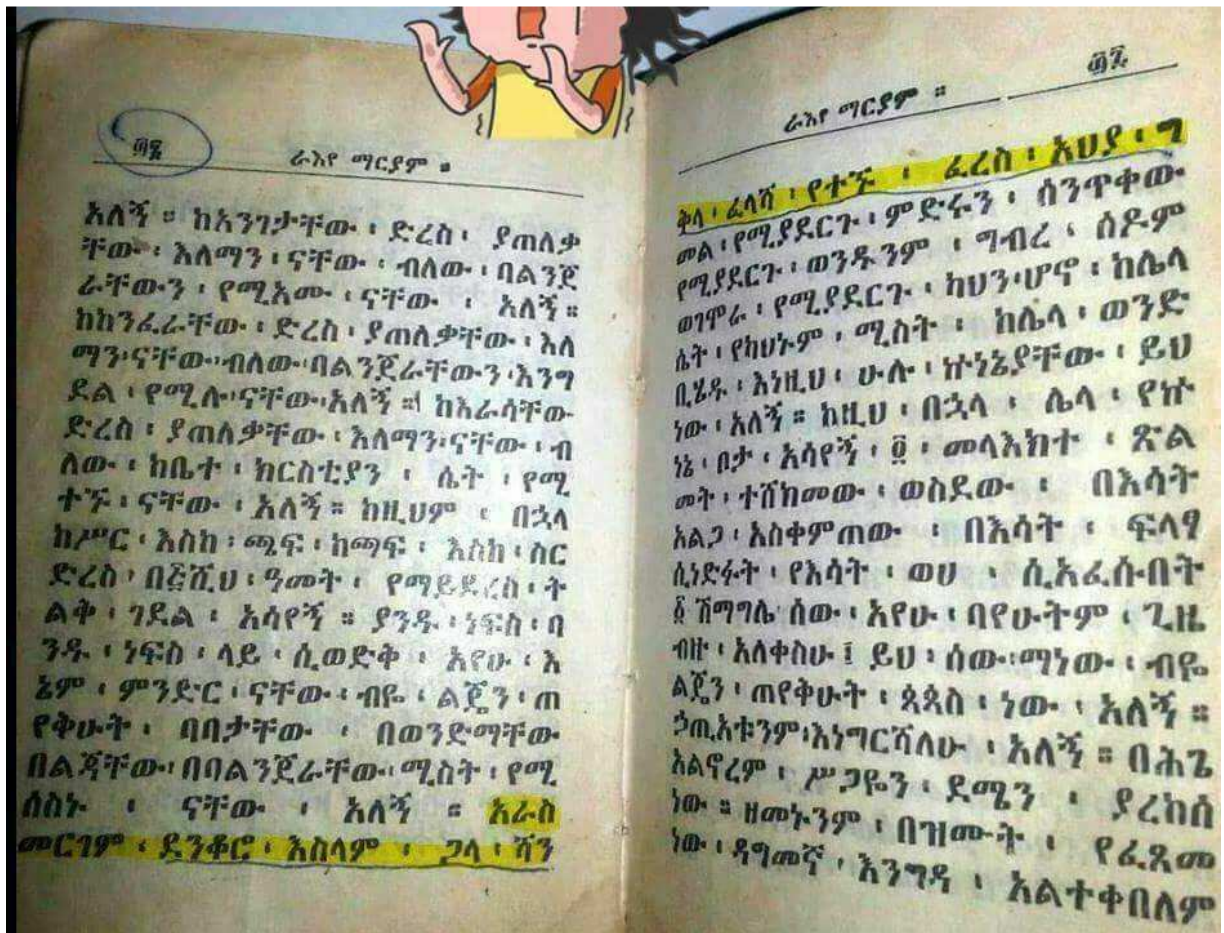 ፴፮
ራእየ ማርያም ።
አለኝ ። ከአንገታቸው ፡ ድረስ ፡ ያጠለቃ
ቸው ፡ እለማን ፡ ናቸው ፡ ብለው ፡ በልንጀ
ራቸውን ፡ የሚአሙ ፡ ናቸው ፡ አለኝ ።
ከከንፈራቸው ፡ ድረስ ፡ ያጠለቃቸው ፡ እለ
ማን ፡ ናቸው ፡ ብለው ፡ በልንጀራቸውን ፡ እንግ
ደል ፡ የሚሉ ፡ ናቸው ፡ አለኝ ። ከእራሳቸው
ድረስ ፡ ያጠለቃቸው ፡ እለማን ፡ ናቸው ፡ ብ
ለው ፡ ከቤተ ፡ ክርስቲያን ፡ ሴት ፡ የሚ
ተኙ ፡ ናቸው ፡ አለኝ ። ከዚህም ፡ በኋላ
ከሥር ፡ እስከ ፡ ጫፍ ፡ ከጫፍ ፡ እስከ ፡ ስር
ድረስ ፡ በ፳ሺህ ፡ ዓመት ፡ የማይደረስ ፡ ት
ልቅ ፡ ገደል ፡ አሳየኝ ። ያንዱ ፡ ነፍስ ፡ ባ
ንዱ ፡ ነፍስ ፡ ላይ ፡ ሲወድቅ ፡ አየሁ ፡ እ
ኔም ፡ ምንድር ፡ ናቸው ፡ ብዬ ፡ ልጄን ፡ ጠ
የቅሁት ፡ ባባታቸው ፡ በወንድማቸው
በልጃቸው ፡ በባልንጀራቸው ፡ ሚስት ፡ የሚ
ሰስኑ ፡ ናቸው ፡ አለኝ ። አራስ
መርገም ፡ ደንቆሮ ፡ እስላም ፡ ጋላ ፡ ሻን
ራእየ ማርያም ።
፴፯
ቅላ ፡ ፈላሻ ፡ የተኙ ፡ ፈረስ ፡ አህያ ፡ ግ
መል ፡ የሚያደርጉ ፡ ምድሩን ፡ ሰንጥቀው
የሚያደርጉ ፡ ወንዱንም ፡ ግብረ ፡ ሰዶም
ወገሞራ ፡ የሚያደርጉ ፡ ካህን ፡ ሆኖ ፡ ከሌላ
ሴት ፡ የካህኑም ፡ ሚስት ፡ ከሌላ ፡ ወንድ
ቢሄዱ ፡ እነዚህ ፡ ሁሉ ፡ ኵነኔያቸው ፡ ይህ
ነው ፡ አለኝ ። ከዚህ ፡ በኋላ ፡ ሌላ ፡ የኵ
ነኔ ፡ ቦታ ፡ አሳየኝ ፡ ፬ ፡ መላእክተ ፡ ጽል
መት ፡ ተሸከመው ፡ ወስደው ፡ በእሳት
አልጋ ፡ አስቀምጠው ፡ በእሳት ፡ ፍላፃ
ሲነድፉት ፡ የእሳት ፡ ወሀ ፡ ሲአፈሱበት
፩ ሽማግሌ ሰው ፡ አየሁ ፡ ባየሁትም ፡ ጊዜ
ብዙ ፡ አለቀስሁ ፤ ይህ ፡ ሰው ፡ ማነው ፡ ብዬ
ልጄን ፡ ጠየቅሁት ፡ ጳጳስ ፡ ነው ፡ አለኝ ።
ኃጢአቱንም ፡ እነግርሻለሁ ፡ አለኝ ። በሕጌ
አልኖረም ፡ ሥጋዬን ፡ ደሜን ፡ ያረከሰ
ነው ። ዘመኑንም ፡ በዝሙት ፡ የፈጸመ
ነው ፡ ዳግመኛ ፡ እንግዳ ፡ አልተቀበለም